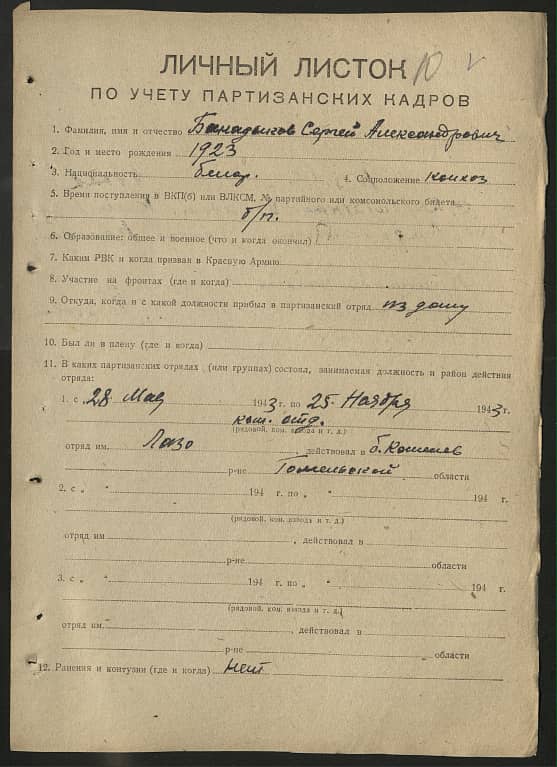 ЛИЧНЫЙ ЛИСТОК
ПО УЧЕТУ ПАРТИЗАНСКИХ КАДРОВ
1. Фамилия, имя и отчество Сергей Александрович
2. Год и место рождения 1923
3. Национальность белар. 4. Соцположение колхоз
5. Время поступления в ВКП(б) или ВЛКСМ, № партийного или комсомольского билета
б/п.
6. Образование: общее и военное (что и когда окончил)
7. Каким РВК и когда призван в Красную Армию
8. Участие на фронтах (где и когда)
9. Откуда, когда и с какой должности прибыл в партизанский отряд из дому
10. Был ли в плену (где и когда)
11. В каких партизанских отрядах (или группах) состоял, занимаемая должность и район действия
отряда:
1. с „ 28 Мая 1943 г. по 25 Ноября 1943 г.
ком. отд.
(рядовой, ком. взвода и т. д.)
отряд им. Лазо , действовал в
р-не Гомельской области
2. с „ " 194 г. по „ " 194 г.
(рядовой, ком. взвода и т. д.)
отряд им , действовал в
р-не области
3. с „ " 194 г. по „ " 194 г.
(рядовой, ком. взвода и т. д.)
отряд им. , действовал в
р-не области
12. Ранения и контузии (где и когда) Нет